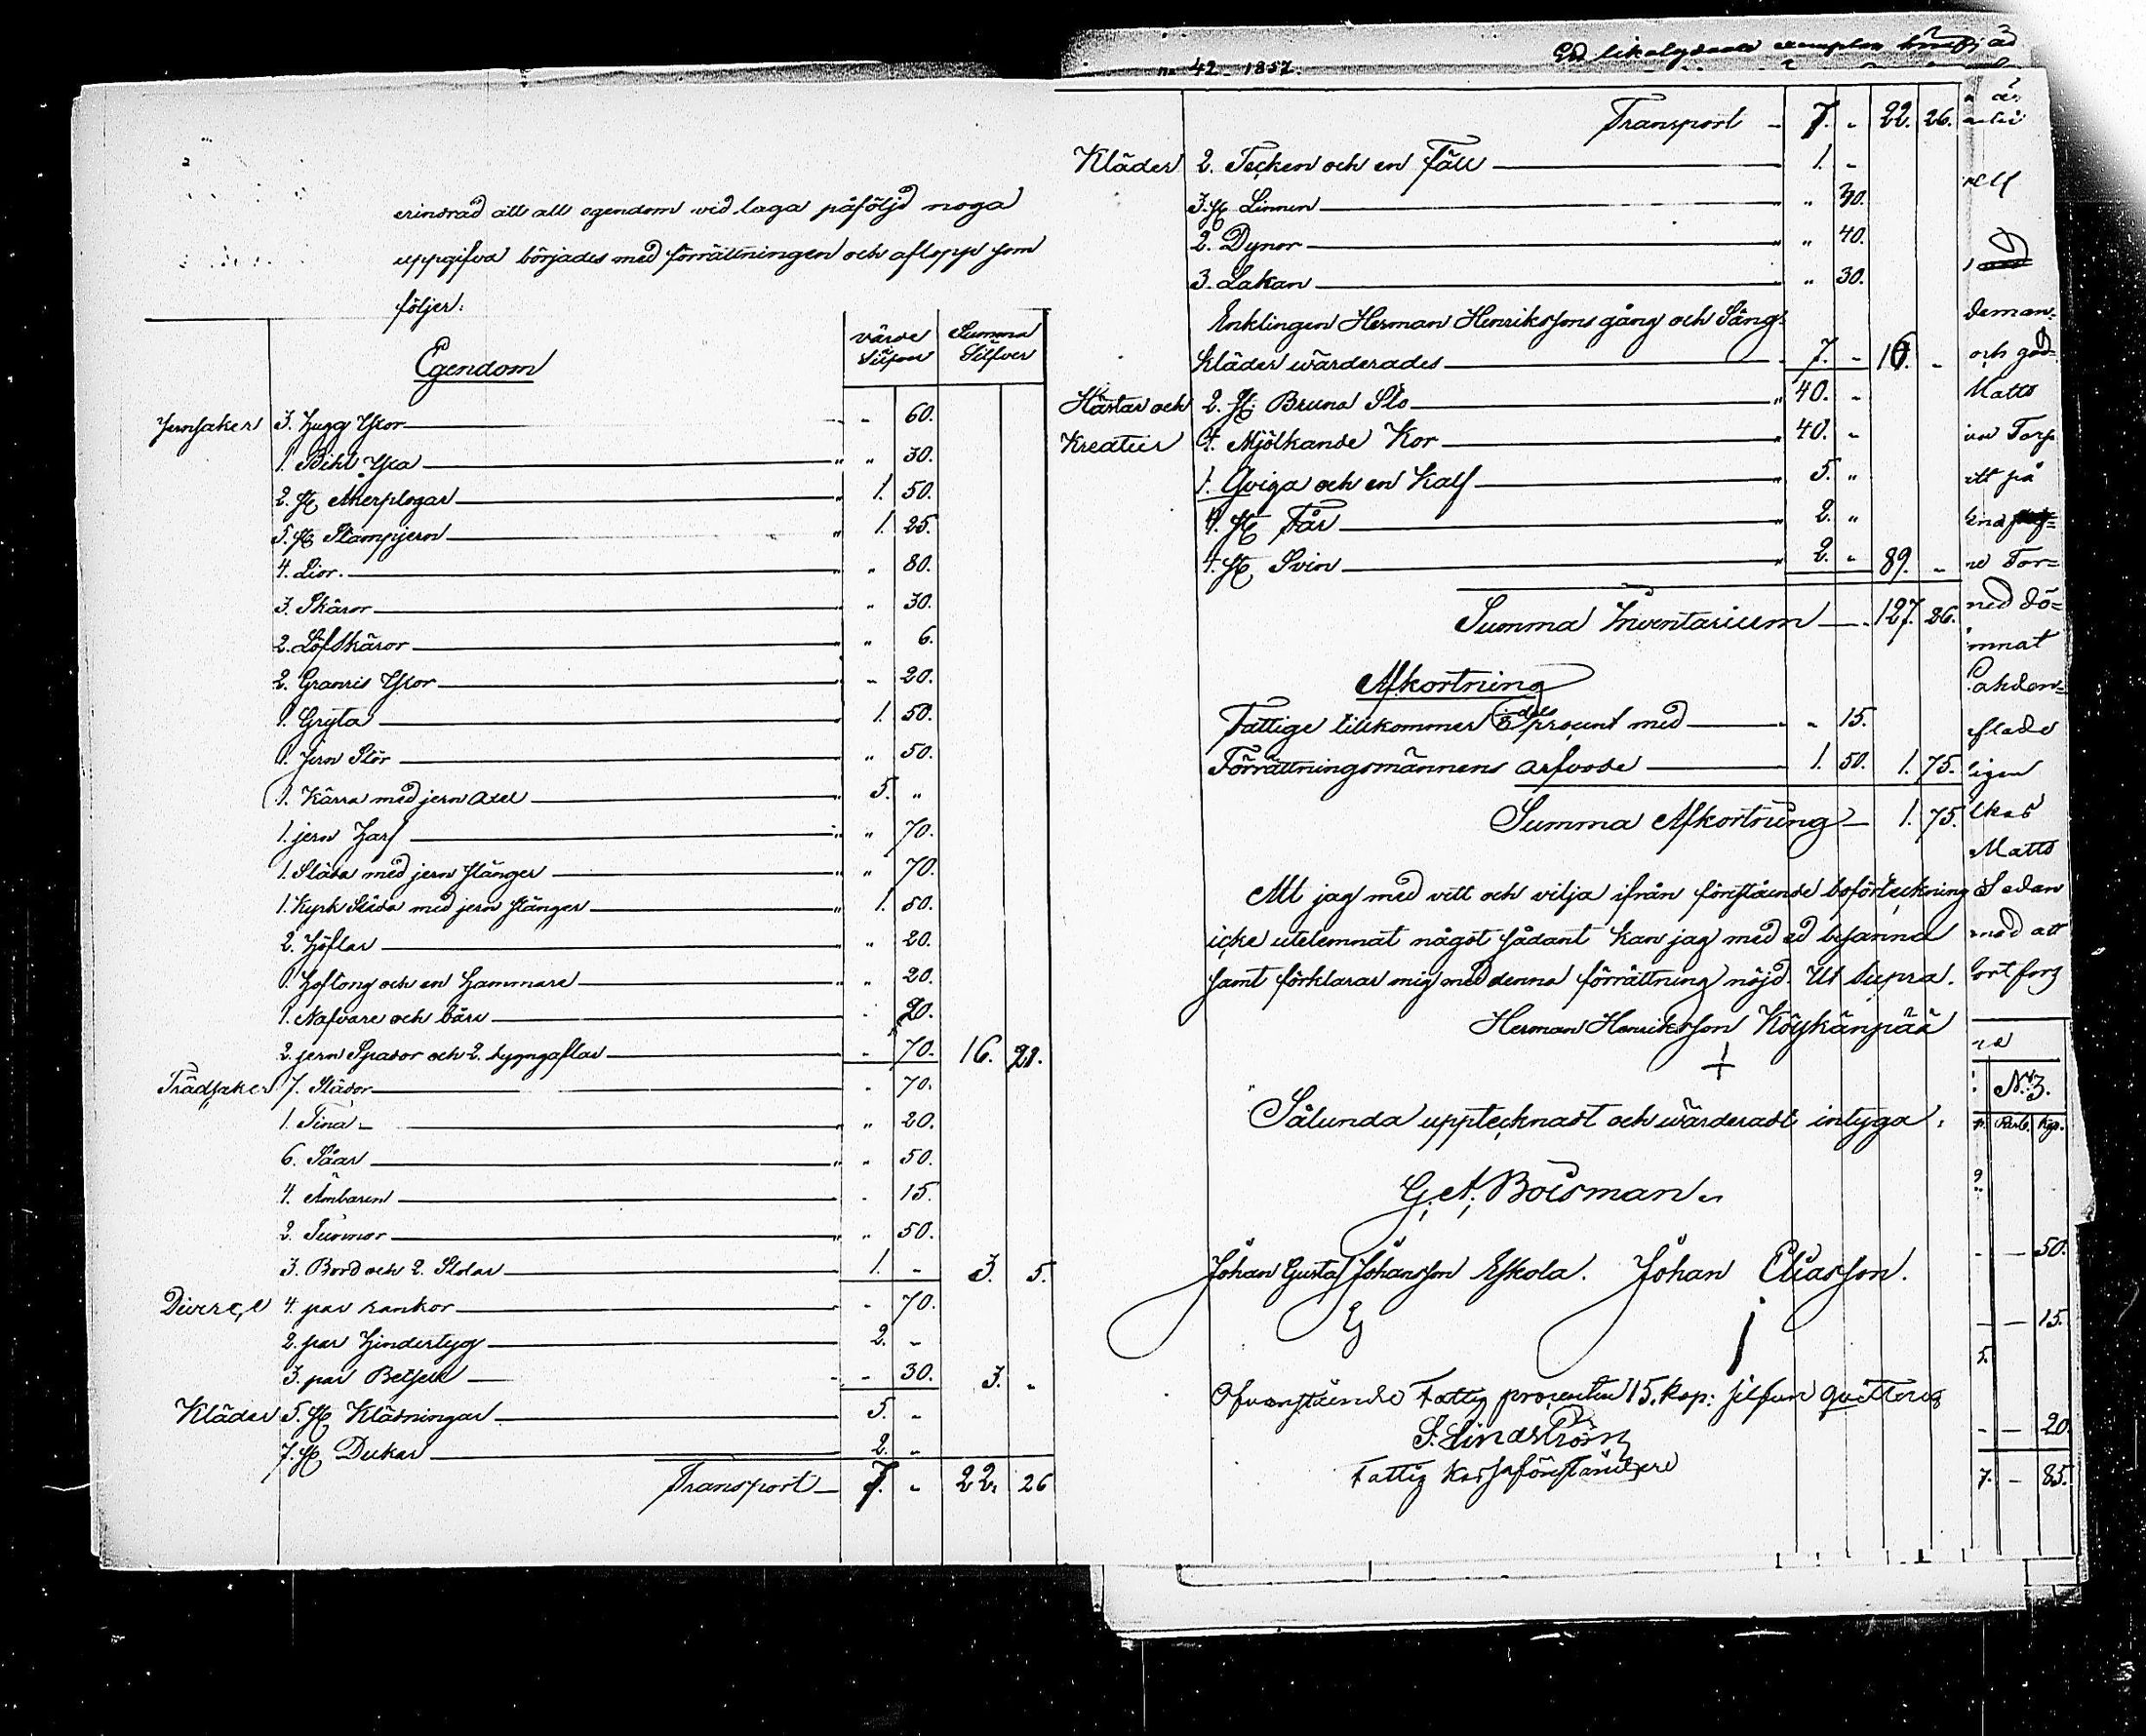 erindrad att all egendom vid laga påföljd noga
uppgifva börjades med förrättningen och aflopp som
följer:
Egendom värde Silfver Summa Silfver
Jernsaker 3. Hugg Yxor " 60.
1. Bihl Yxa " " 30.
2. st Åkerplogar " 1. 50.
5. st Stampjern " 1. 25.
4. Lior. " " 80.
3. Skäror " 30.
2. Löfskäror " 6.
2. Granris Yxor " 20.
1. Gryta 1. 50.
1. Jern Stör " 50.
1. Kärra med jern axel " 5. "
1. jern Harf " " 70.
1. Släda med jern stänger " " 70.
1. Kyrk Släda med jern stänger " 1. 50.
2. Höflar " 20.
1. Hoftong och en Hammare " 20.
1. Nafvare och bäre 20.
2. jern Spador och 2. dyngaflar " 70. 16. 21.
Trädsaker 7. Slädor " 70.
1. Tina " 20.
6. Såar " " 50.
4. Ämbaren " 15.
2. Tunnor " " 50.
3. Bord och 2. Stolar 1. " 3. 5.
Diverse 4. par rankor " 70.
2. par Hindertyg 2. "
3. par Betsel " 30. 3. "
Kläder 5. st Klädningar 5. "
7. st Dukar 2. "
Transport 7. " 22. 26
no 42. 1857.
Ett likalydande exemplar
Transport 7. " 22. 26.
Kläder 2. Tecken och en Fäll 1. "
3. st Linnen " 30.
2. Dynor " 40.
3. Lakan " 30.
Enklingen Herman Henrikssons gång och Säng-
kläder wärderades 7. " 16. "
Hästar och 2. st. Bruna Sto " 40. "
Kreatur 4. Mjölkande Kor 40. "
1. Qviga och en Kalf 5. "
4. st Får 2. "
4. st Svin 2. " 89. "
Summa Inventarium 127. 26.
Afkortning
Fattige tillkommer procent med " 15.
Förrättningsmännens arfvode 1. 50. 1. 75.
Summa Afkortning 1. 75.
Att jag med vett och vilja ifrån förestående boförteckning
icke utelemnat något sådant kan jag med ed besanna
samt förklarar mig med denna förrättning nöjd. Ut supra.
Herman Henriksson Köykänpää
Sålunda upptecknadt och wärderadt intyga:
G. A. Boisman
Johan Gustaf Johansson Eskola. Johan Eliasson.
Ofvanstående Fattig procenten 15. kop: silfver quitteras
S. Lindström
Fattig kassaföreståndare
deman-
och god-
Matts
Torp
ett på
ned dö-
Matts
Sedan
med att
No 3.
Rub. Kop.
50.
15.
5.
20.
7. 85.